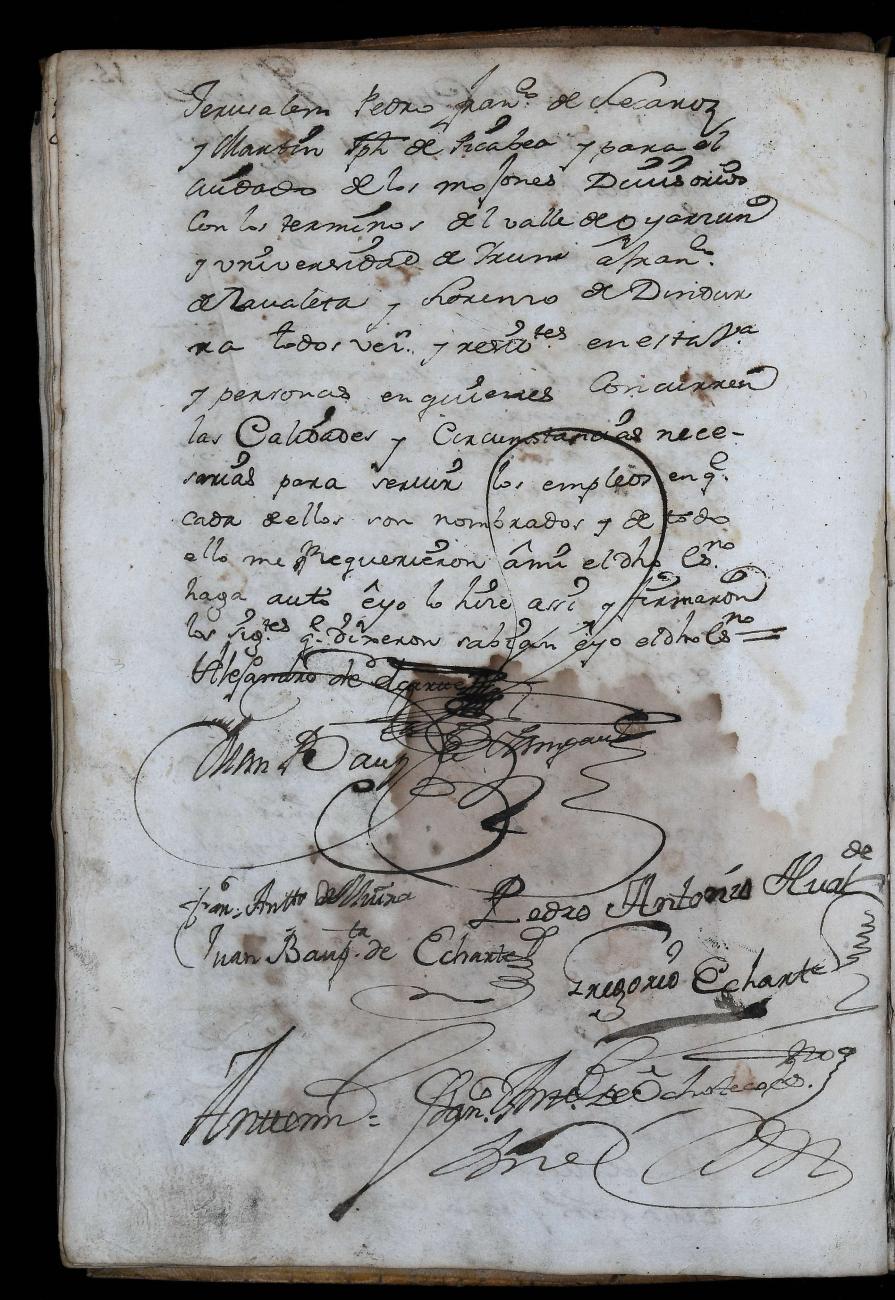 Jerusalem Pedro Fran.co de Necaroz
y Martin Jph de Picabea y para el
cuidado de los mojones Divisorios
con los terminos del valle de oyarzun
y universidad de Yrun a fran.co
de Zavaleta y Lorenzo de Dindur
ra todos vez.s y resid.tes en esta V.a
y personas en quienes Concurren
las Calidades y Circunstancias nece-
sarias para servir los empleos en q.e
cada dellos son nombrados y de todo
ello me Requerieron â mi el dho Es.no
haga auto êyo lo hize assi y firmaron
los sig.tes q.e dixeron sabian êyo el dho Es.no =
Alejandro de
Juan Bau
Fran.co Antto de Pedro Antonio
Juan Baup.ta de Echarte
Gregorio Echarte
Anttemi = Fran.co Ant.o de Ochoteco es.no